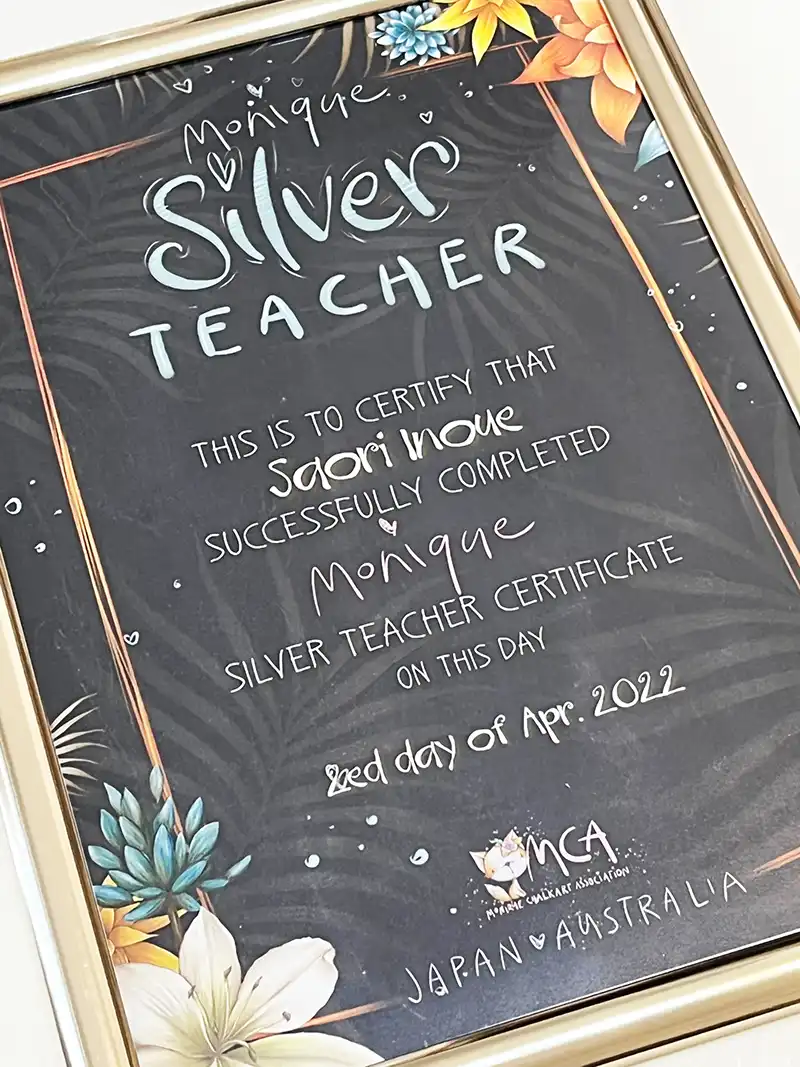 Monique
Silver
TEACHER
THIS IS TO CERTIFY THAT
Saori Inoue
SUCCESSFULLY COMPLETED
Monique
SILVER TEACHER CERTIFICATE
ON THIS DAY
day of Apr. 2022
MCA
MONIQUE CHALKART ASSOCIATION
JAPAN AUSTRALIA